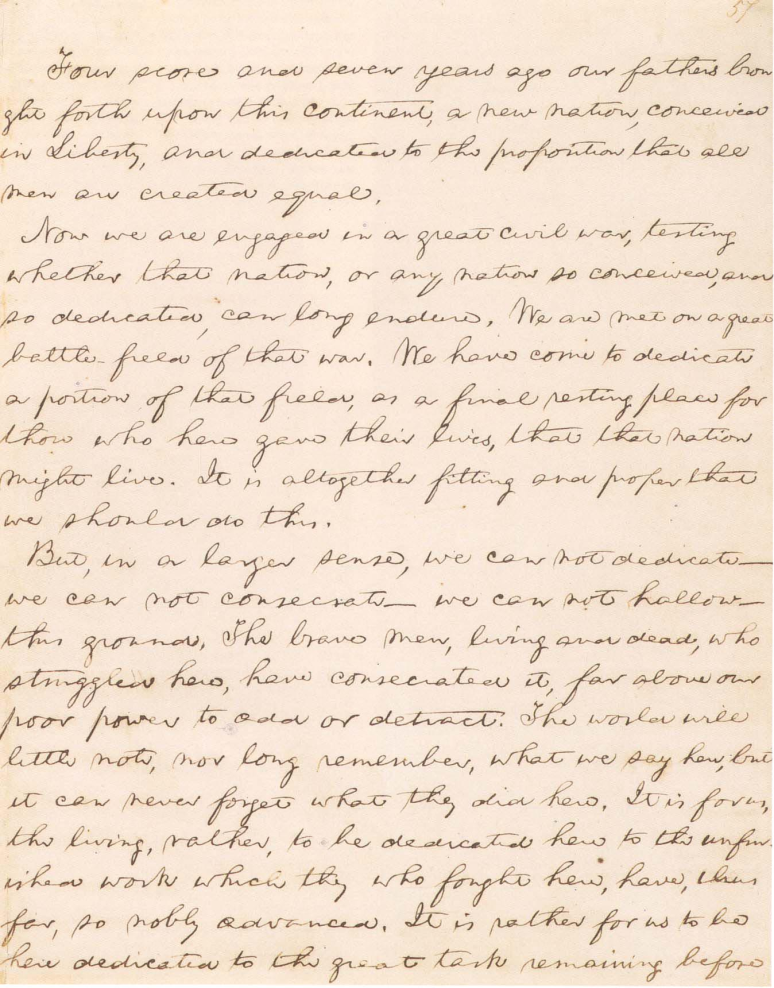 57
Four score and seven years ago our fathers brou
ght forth upon this continent, a new nation, conceived
in Liberty, and dedicated to the proposition that all
men are created equal.
Now we are engaged in a great civil war, testing
whether that nation, or any nation so conceived, and
so dedicated, can long endure. We are met on a great
battle-field of that war. We have come to dedicate
a portion of that field, as a final resting place for
those who here gave their lives, that that nation
might live. It is altogether fitting and proper that
we should do this.
But, in a larger sense, we can not dedicate—
we can not consecrate— we can not hallow—
this ground. The brave men, living and dead, who
struggled here, have consecrated it, far above our
poor power to add or detract. The world will
little note, nor long remember, what we say here, but
it can never forget what they did here. It is for us,
the living, rather, to be dedicated here to the unfin-
ished work which they who fought here, have, thus
far, so nobly advanced. It is rather for us to be
here dedicated to the great task remaining before